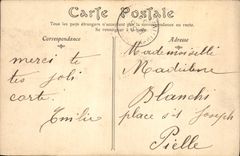 Carte Postale
Tous les pays étrangers n'acceptent pas la correspondance au recto.
Se renseigner à la poste
Correspondance
Adresse
merci te
tes joli
carte.
Emilie
Mademoiselle
Madeleine
Blanchi
place s't Joseph
Pielle